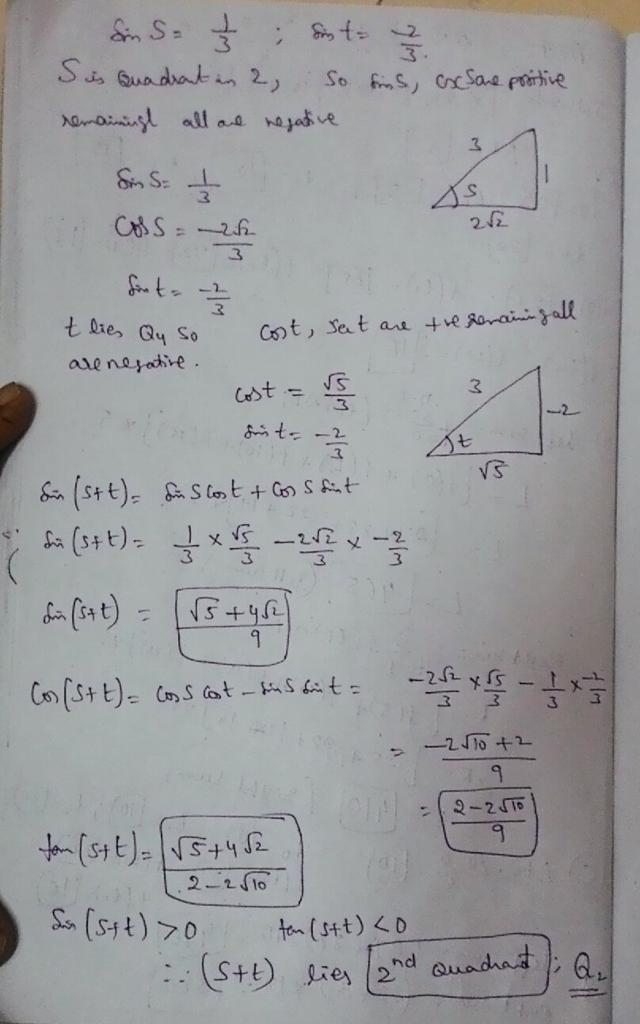 Sin S = 1/3 ; Sin t = -2/3.
S is Quadrat in 2, So Sin S, csc S are positive
remainingl all are negative
Sin S = 1/3
3
1
S
2√2
Cos S = -2√2/3
Sin t = -2/3
t lies Q4 So Cost, Sec t are +ve remaining all
are negative.
Cost = √5/3
3
-2
t
√5
Sin t = -2/3
Sin (S+t) = Sin S Cost + Cos S Sin t
Sin (S+t) = 1/3 × √5/3 -2√2/3 × -2/3
Sin (S+t) = √5+4√2/9
Cos (S+t) = Cos S Cost - Sin S Sin t = -2√2/3 × √5/3 - 1/3 × -2/3
= -2√10+2/9
= 2-2√10/9
tan (S+t) = √5+4√2/2-2√10
Sin (S+t) >0 tan (S+t) <0
∴ (S+t) lies 2nd Quadrant; Q2